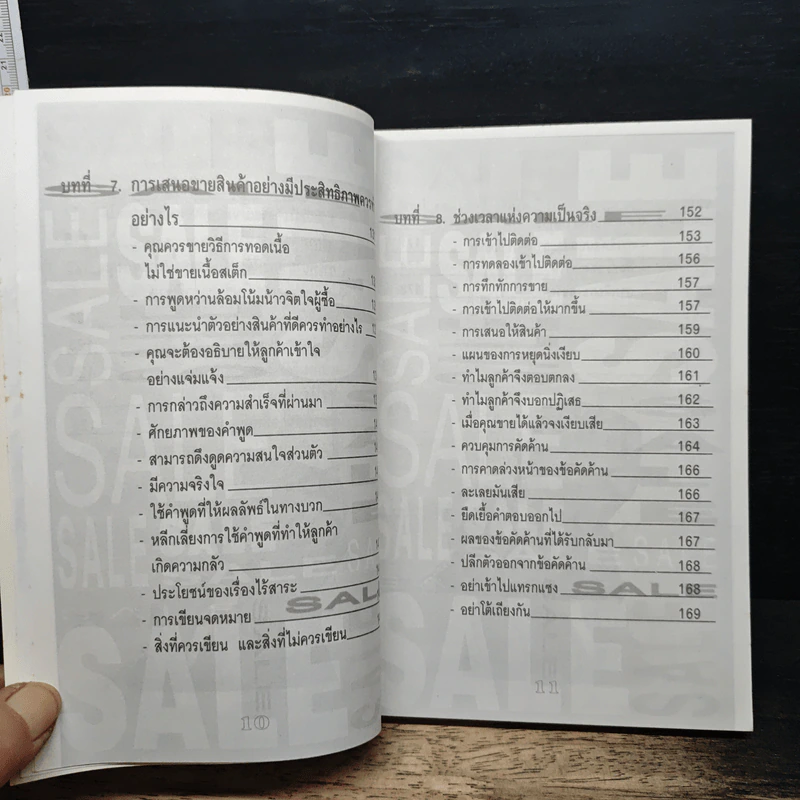 บทที่ 7. การเสนอขายสินค้าอย่างมีประสิทธิภาพควร
อย่างไร
- คุณควรขายวิธีการทอดเนื้อ
ไม่ใช่ขายเนื้อสเต็ก
- การพูดหว่านล้อมโน้มน้าวจิตใจผู้ซื้อ
- การแนะนำตัวอย่างสินค้าที่ดีควรทำอย่างไร
- คุณจะต้องอธิบายให้ลูกค้าเข้าใจ
อย่างแจ่มแจ้ง
- การกล่าวถึงความสำเร็จที่ผ่านมา
- ศักยภาพของคำพูด
- สามารถดึงดูดความสนใจส่วนตัว
- มีความจริงใจ
- ใช้คำพูดที่ให้ผลลัพธ์ในทางบวก
- หลีกเลี่ยงการใช้คำพูดที่ทำให้ลูกค้า
เกิดความกลัว
- ประโยชน์ของเรื่องไร้สาระ
- การเขียนจดหมาย
- สิ่งที่ควรเขียน และสิ่งที่ไม่ควรเขียน
SALE
10
บทที่ 8. ช่วงเวลาแห่งความเป็นจริง 152
- การเข้าไปติดต่อ 153
- การทดลองเข้าไปติดต่อ 156
- การทึกทักการขาย 157
- การเข้าไปติดต่อให้มากขึ้น 157
- การเสนอให้สินค้า 159
- แผนของการหยุดนิ่งเงียบ 160
- ทำไมลูกค้าจึงตอบตกลง 161
- ทำไมลูกค้าจึงบอกปฏิเสธ 162
- เมื่อคุณขายได้แล้วจงเงียบเสีย 163
- ควบคุมการคัดค้าน 164
- การคาดล่วงหน้าของข้อคัดค้าน 166
- ละเลยมันเสีย 166
- ยืดเยื้อคำตอบออกไป 167
- ผลของข้อคัดค้านที่ได้รับกลับมา 167
- ปลีกตัวออกจากข้อคัดค้าน 168
- อย่าเข้าไปแทรกแซง 168
- อย่าโต้เถียงกัน 169
SALE
11